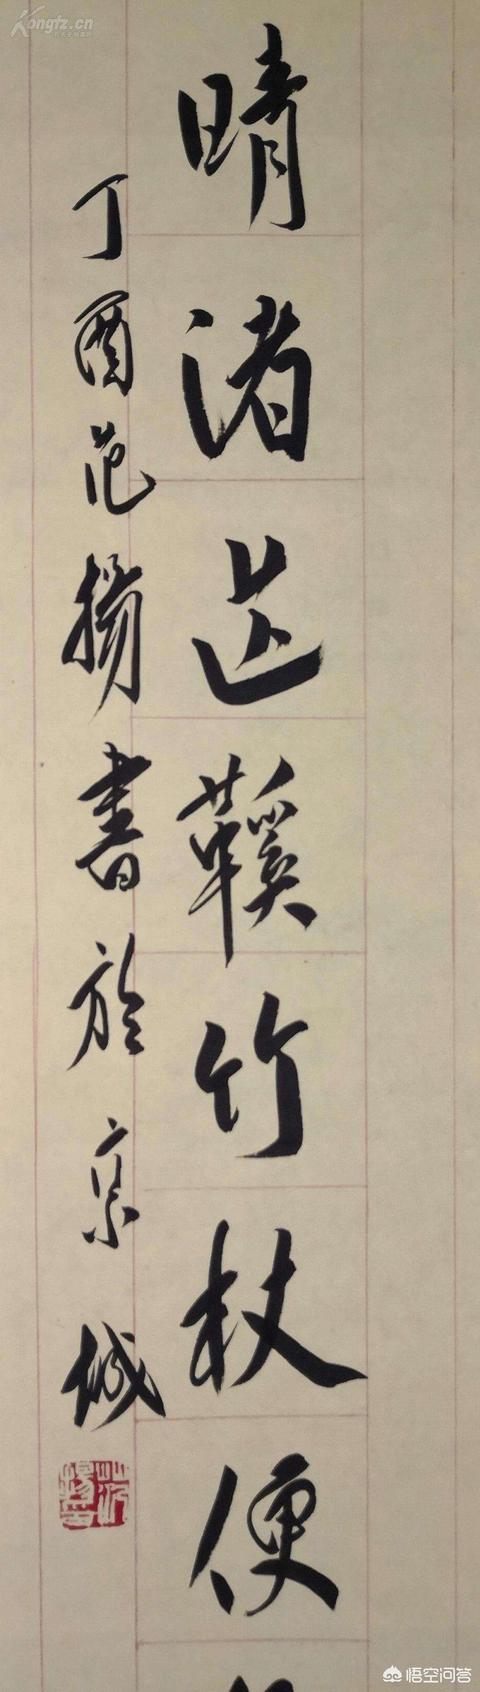 Kongfz.cn
晴渚芒鞵竹杖便
丁酉范揚書於京城
悟空问答